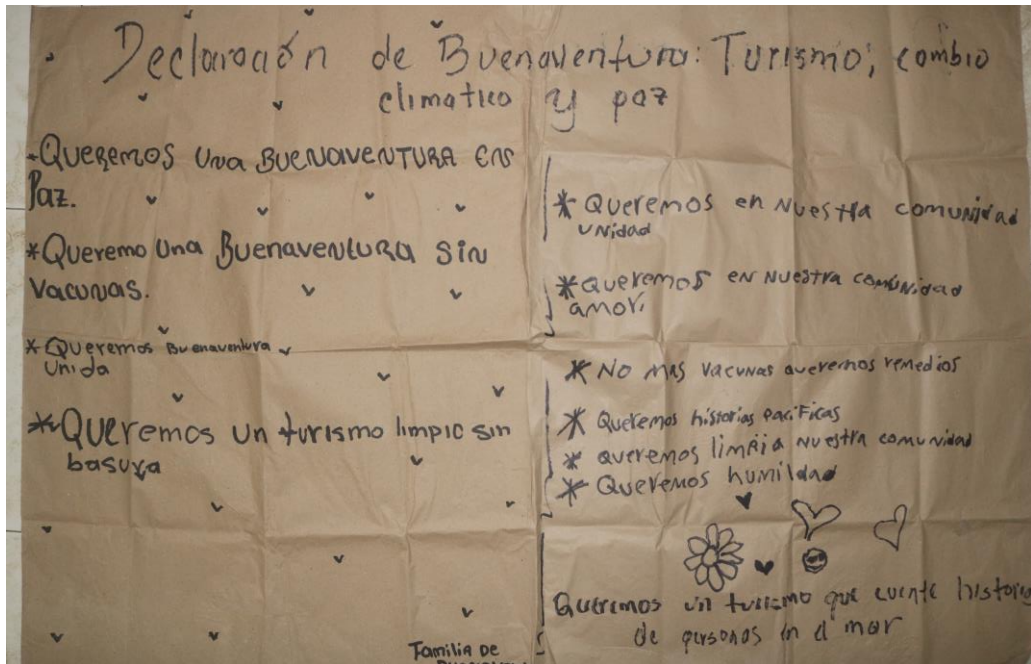 Declaración de Buenaventura: Turismo; cambio
climatico y paz
*QUEREMOS UNA BUENAVENTURA EN
Paz.
*Queremo Una Buenaventura SIN
Vacunas.
*Queremos Buenaventura
Unida
*Queremos un turismo limpio sin
basura
* Queremos en Nuestra comunidad
UNidad
*queremos en Nuestra comunidad
amor.
* No mas vacunas queremos remedios
* Queremos historias pacificas
* queremos limpia Nuestra comunidad
* Queremos humildad
Queremos un turismo que cuente historia
de personas en el mar
Familia De